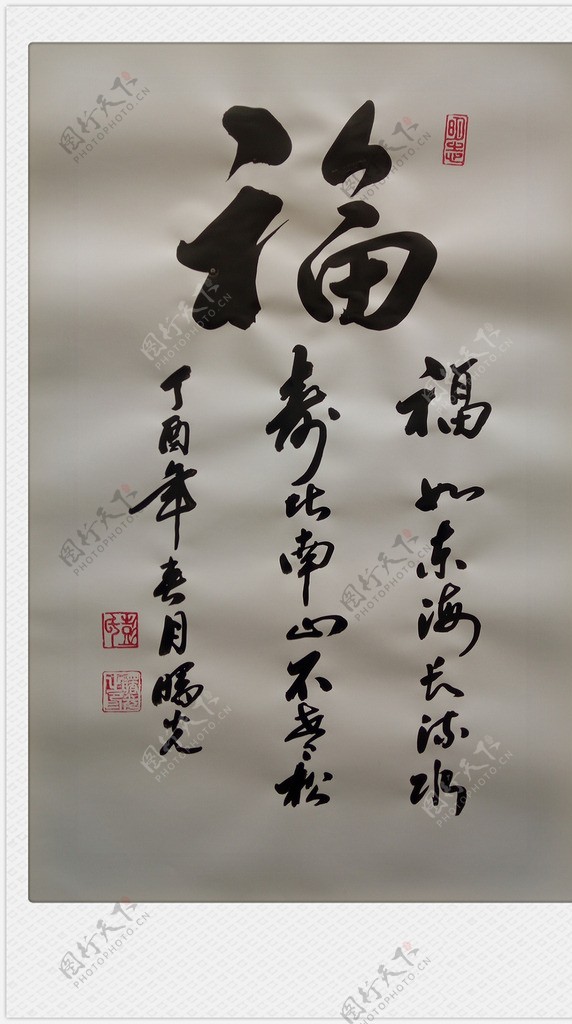 福
福如东海长流水
寿比南山不老松
丁酉年春月曙光
图行天下
PHOTOPHOTO.CN